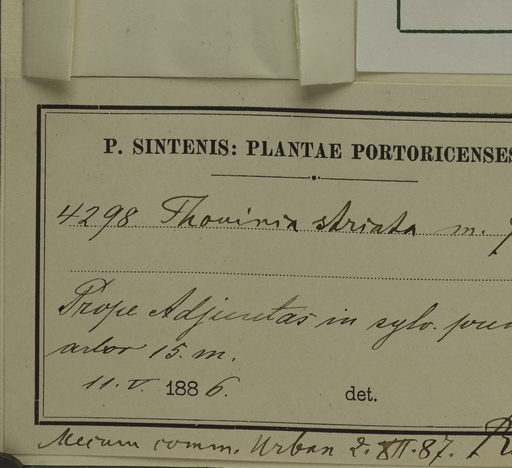 P. SINTENIS: PLANTAE PORTORICENSES
4298 Thouinia striata m.
Prope Adjuntas in sylv.
arbor 15. m.
11. V. 1886.
det.
Mecum comm. Urban 2. XII. 87.